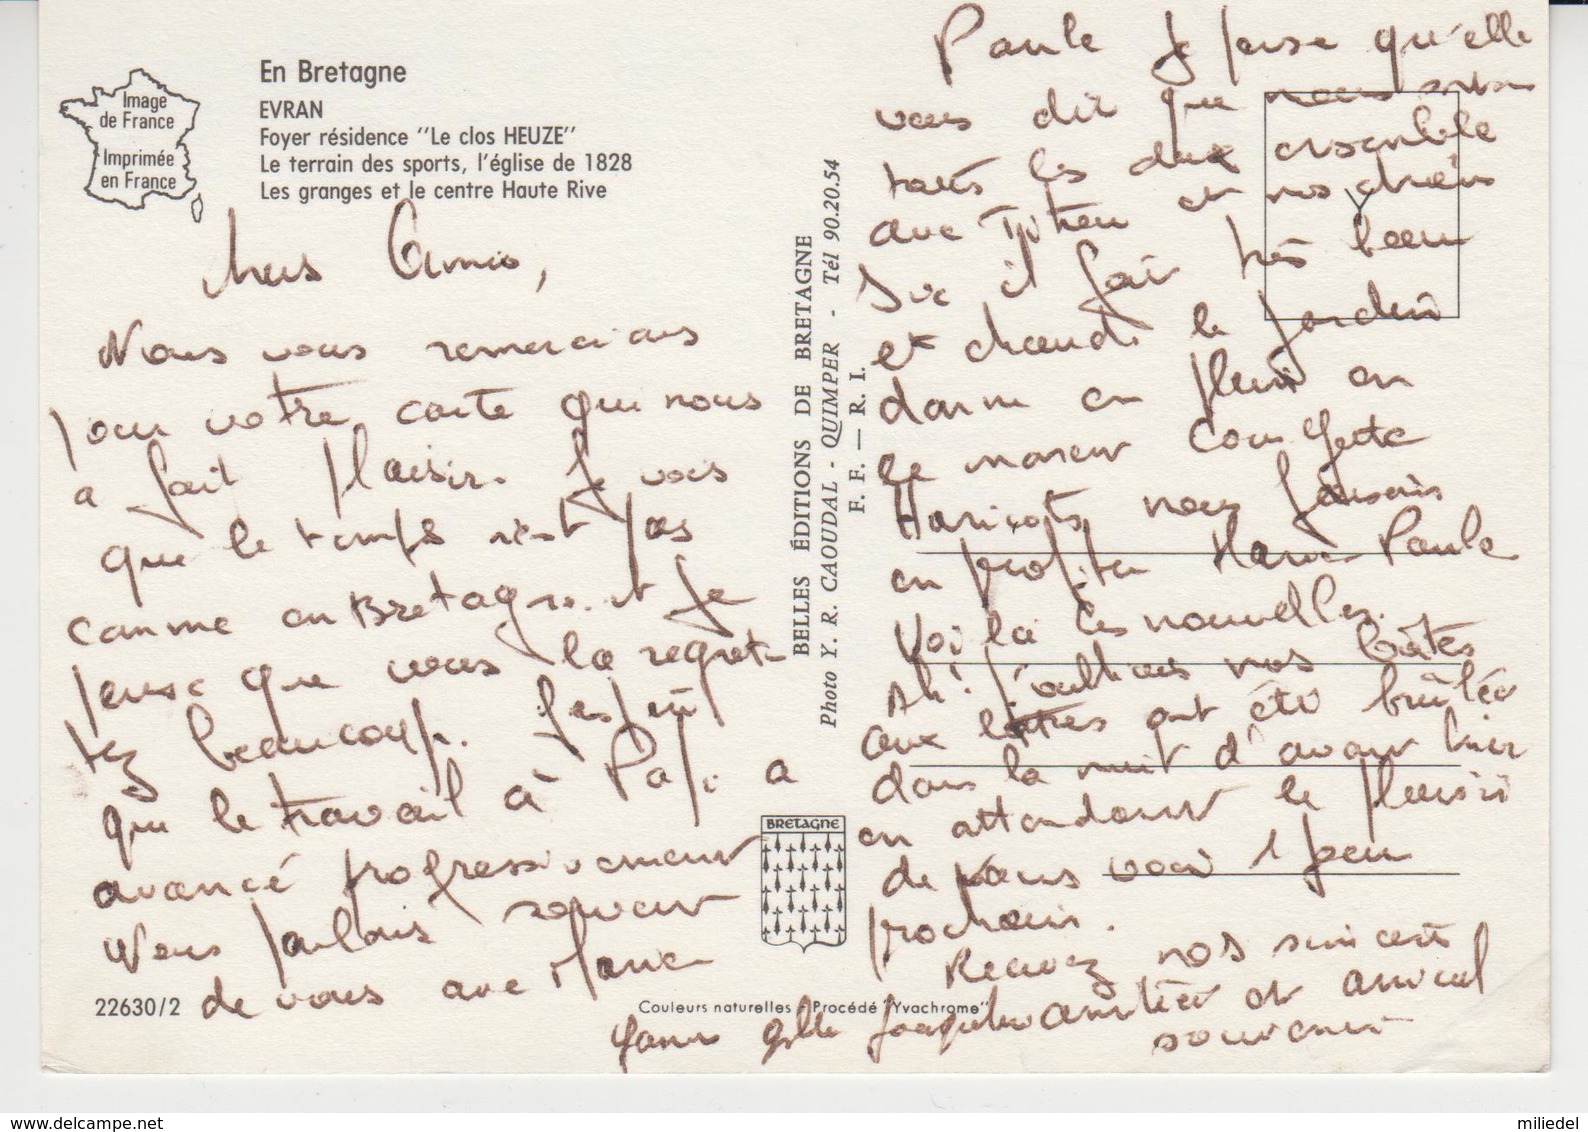 Image
de France
Imprimée
en France
En Bretagne
EVRAN
Foyer résidence "Le clos HEUZE"
Le terrain des sports, l'église de 1828
Les granges et le centre Haute Rive
chers Amis,
Nous vous remercions
pour votre carte qui nous
a fait plaisir. Je vois
que le temps n'est pas
comme en Bretagne et je
pense que vous la regret-
tez beaucoup. J'espère
que le travail à Papi a
avancé progressivement
Nous parlons souvent
de vous avec Marie
22630/2
BELLES ÉDITIONS DE BRETAGNE
Photo Y. R. CAOUDAL - QUIMPER - Tél 90.20.54
F. F. — R. I.
BRETAGNE
Couleurs naturelles - Procédé "Yvachrome"
Y
Paule je pense qu'elle
vous dit que nous sortons
tous les deux ensemble
avec et nos chiens
Ici il fait très beau
et chaud le jardin
donne en plein en
ce moment courgette
Haricots nous faisons
en profiter Marie Paule
Voilà les nouvelles.
Ah! j'oubliais nos boîtes
aux lettres ont été brûlées
dans la nuit d'avant hier
en attendant le plaisir
de vous voir 1 peu
prochain.
Recevez nos sincères
amitiés et amical
souvenir